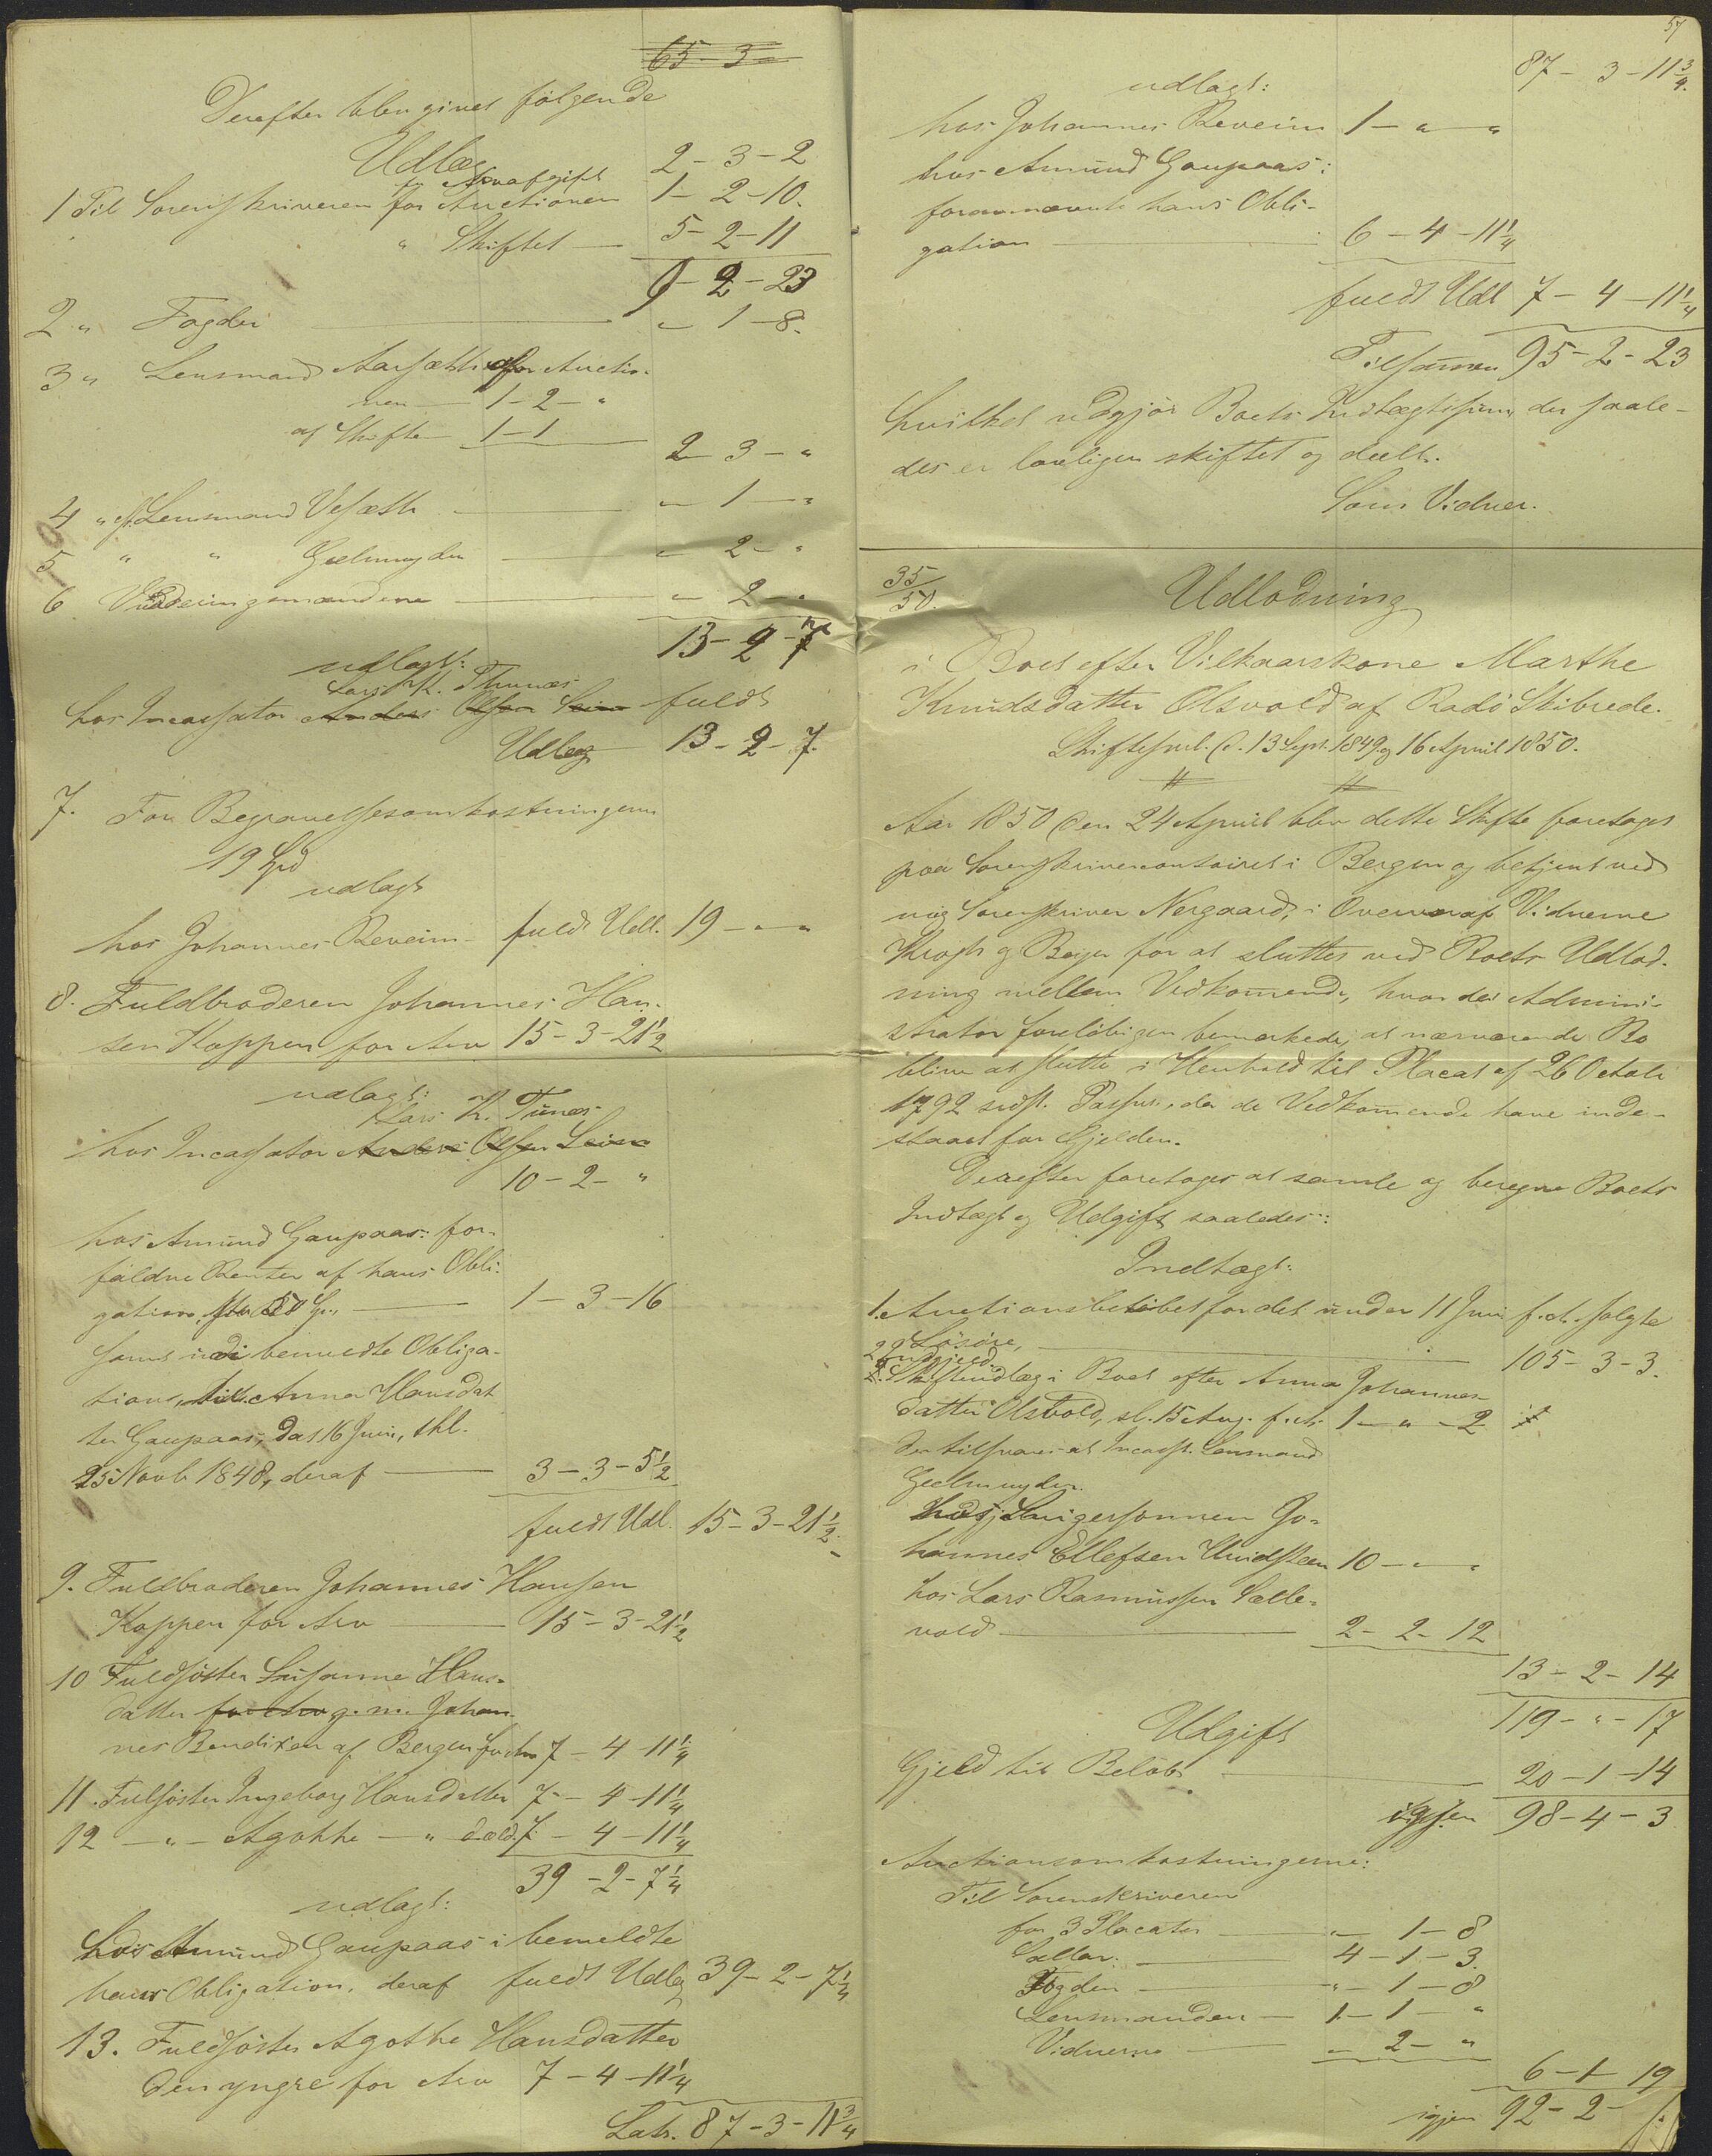 65-3-
Derefter blev givet følgende
Udlæg
for Arvafgift 2-3-2
1 Til Sorenskriveren for Auctionen 1-2-10.
" Skiftet 5-2-11
9-2-23
2 " Fogden " 1-8.
3 " Lensmand Aarsæth for Auctio-
nen 1-2-"
af Skifte 1-1
2 3-"
4 " Lensmand Vesæth " 1-"
5 " " Gjelmuyden " 2-"
6 Vurderingsmændene " 2-"
13-2-7
udlagt:
Lars K. Thunæs
hos Incassator Anders Olsen fuldt
Udlæg 13-2-7.
7. For Begravelsesomkostningerne
19 Spd
udlagt
hos Johannes Reveim fuldt Udl. 19-"-"
8. Fuldbroderen Johannes Han-
sen Koppen for Arv 15-3-21½
udlagt:
Lars K. Tunæs
hos Incassator Anders Olsen
10-2-"
hos Amund Gaupaas: for-
faldne Renter af hans Obli-
gation, 1-3-16
samt i bemeldte Obliga-
tion, till. Anna Hansdat
ter Gaupaas, dat 16 Juni, thl.
25 Novb 1848, deraf 3-3-5½
fuldt Udl. 15-3-21½
9. Fuldbroderen Johannes Hansen
Koppen for Arv 15-3-21½
10 Fuldsøster Susanne Hans-
datter for Arv g. m. Johan-
nes Bendixen af Bergen for Arv 7-4-11¼
11. Fulsøster Ingeborg Hansdatter 7-4-11¼
12 -"- Agathe -" d. æld. 7-4-11¼
39-2-7¼
udlagt:
hos Amund Gaupaas i bemeldte
hans Obligation, deraf fuldt Udlæg 39-2-7¼
13. Fuldsøster Agathe Hansdatter
den yngre for Arv 7-4-11¼
Lats. 87-3-11¾
57
87-3-11¾.
udlagt:
hos Johannes Reveim 1-"-"
hos Amund Gaupaas:
forannævnte hans Obli-
gation 6-4-11¼
fuldt Udl 7-4-11¼
Tilsammen 95-2-23
hvilket udgjør Boets Indtægtssum, der saale-
des er lovligen skiftet og deelt.
Som Vidner.
35/50.
Udlodning
i Boet efter Vilkaarskone Marthe
Knudsdatter Olsvold af Radø Skibrede.
Skiftesml. d. 13 Sept. 1849 og 16 April 1850.
Aar 1850 den 24 April blev dette Skifte foretaget
paa Sorenskrivercontoiret i Bergen og betjent ved
mig Sorenskriver Nergaard, i Overvær af Vidnerne
Krogh og Beyer for at sluttes ved Boets Udlod-
ning mellem Vedkommende, hvor da Admini-
strator foreløbigen bemærkede, at nærværende Bo
bliver at slutte i Henhold til Placat af 26 Octob
1792 sidst. Passus, da de Vedkommende have inde-
staaet for Gjelden.
Derefter foretoges at samle og beregne Boets
Indtægt og Udgift saaledes:
Indtægt:
1. Auctionsbeløbet for det under 11 Juni f. A. solgte
Løsøre, 105-3-3.
2. Udgjeld.
Skifteudlæg i Boet efter Anna Johannes
datter Olsvold, sl. 15 Aug. f. A. 1-"-2
der tilsvares at Incass. Lensmand
Gjelmuyden.
hos Svigersønnen Jo-
hannes Ellefsen Hvidsteen 10-"-"
hos Lars Rasmussen Sælle-
vold 2-2-12
13-2-14
119-"-17
Udgift
Gjeld til Beløb 20-1-14
igjen 98-4-3
Auctionsomkostningerne:
Til Sorenskriveren
for 3 Placater "-1-8
Sallar. 4-1-3.
Fogden "-1-8
Lensmanden 1-1-"
Vidnerne " 2-"
6-1-19
igjen 92-2-